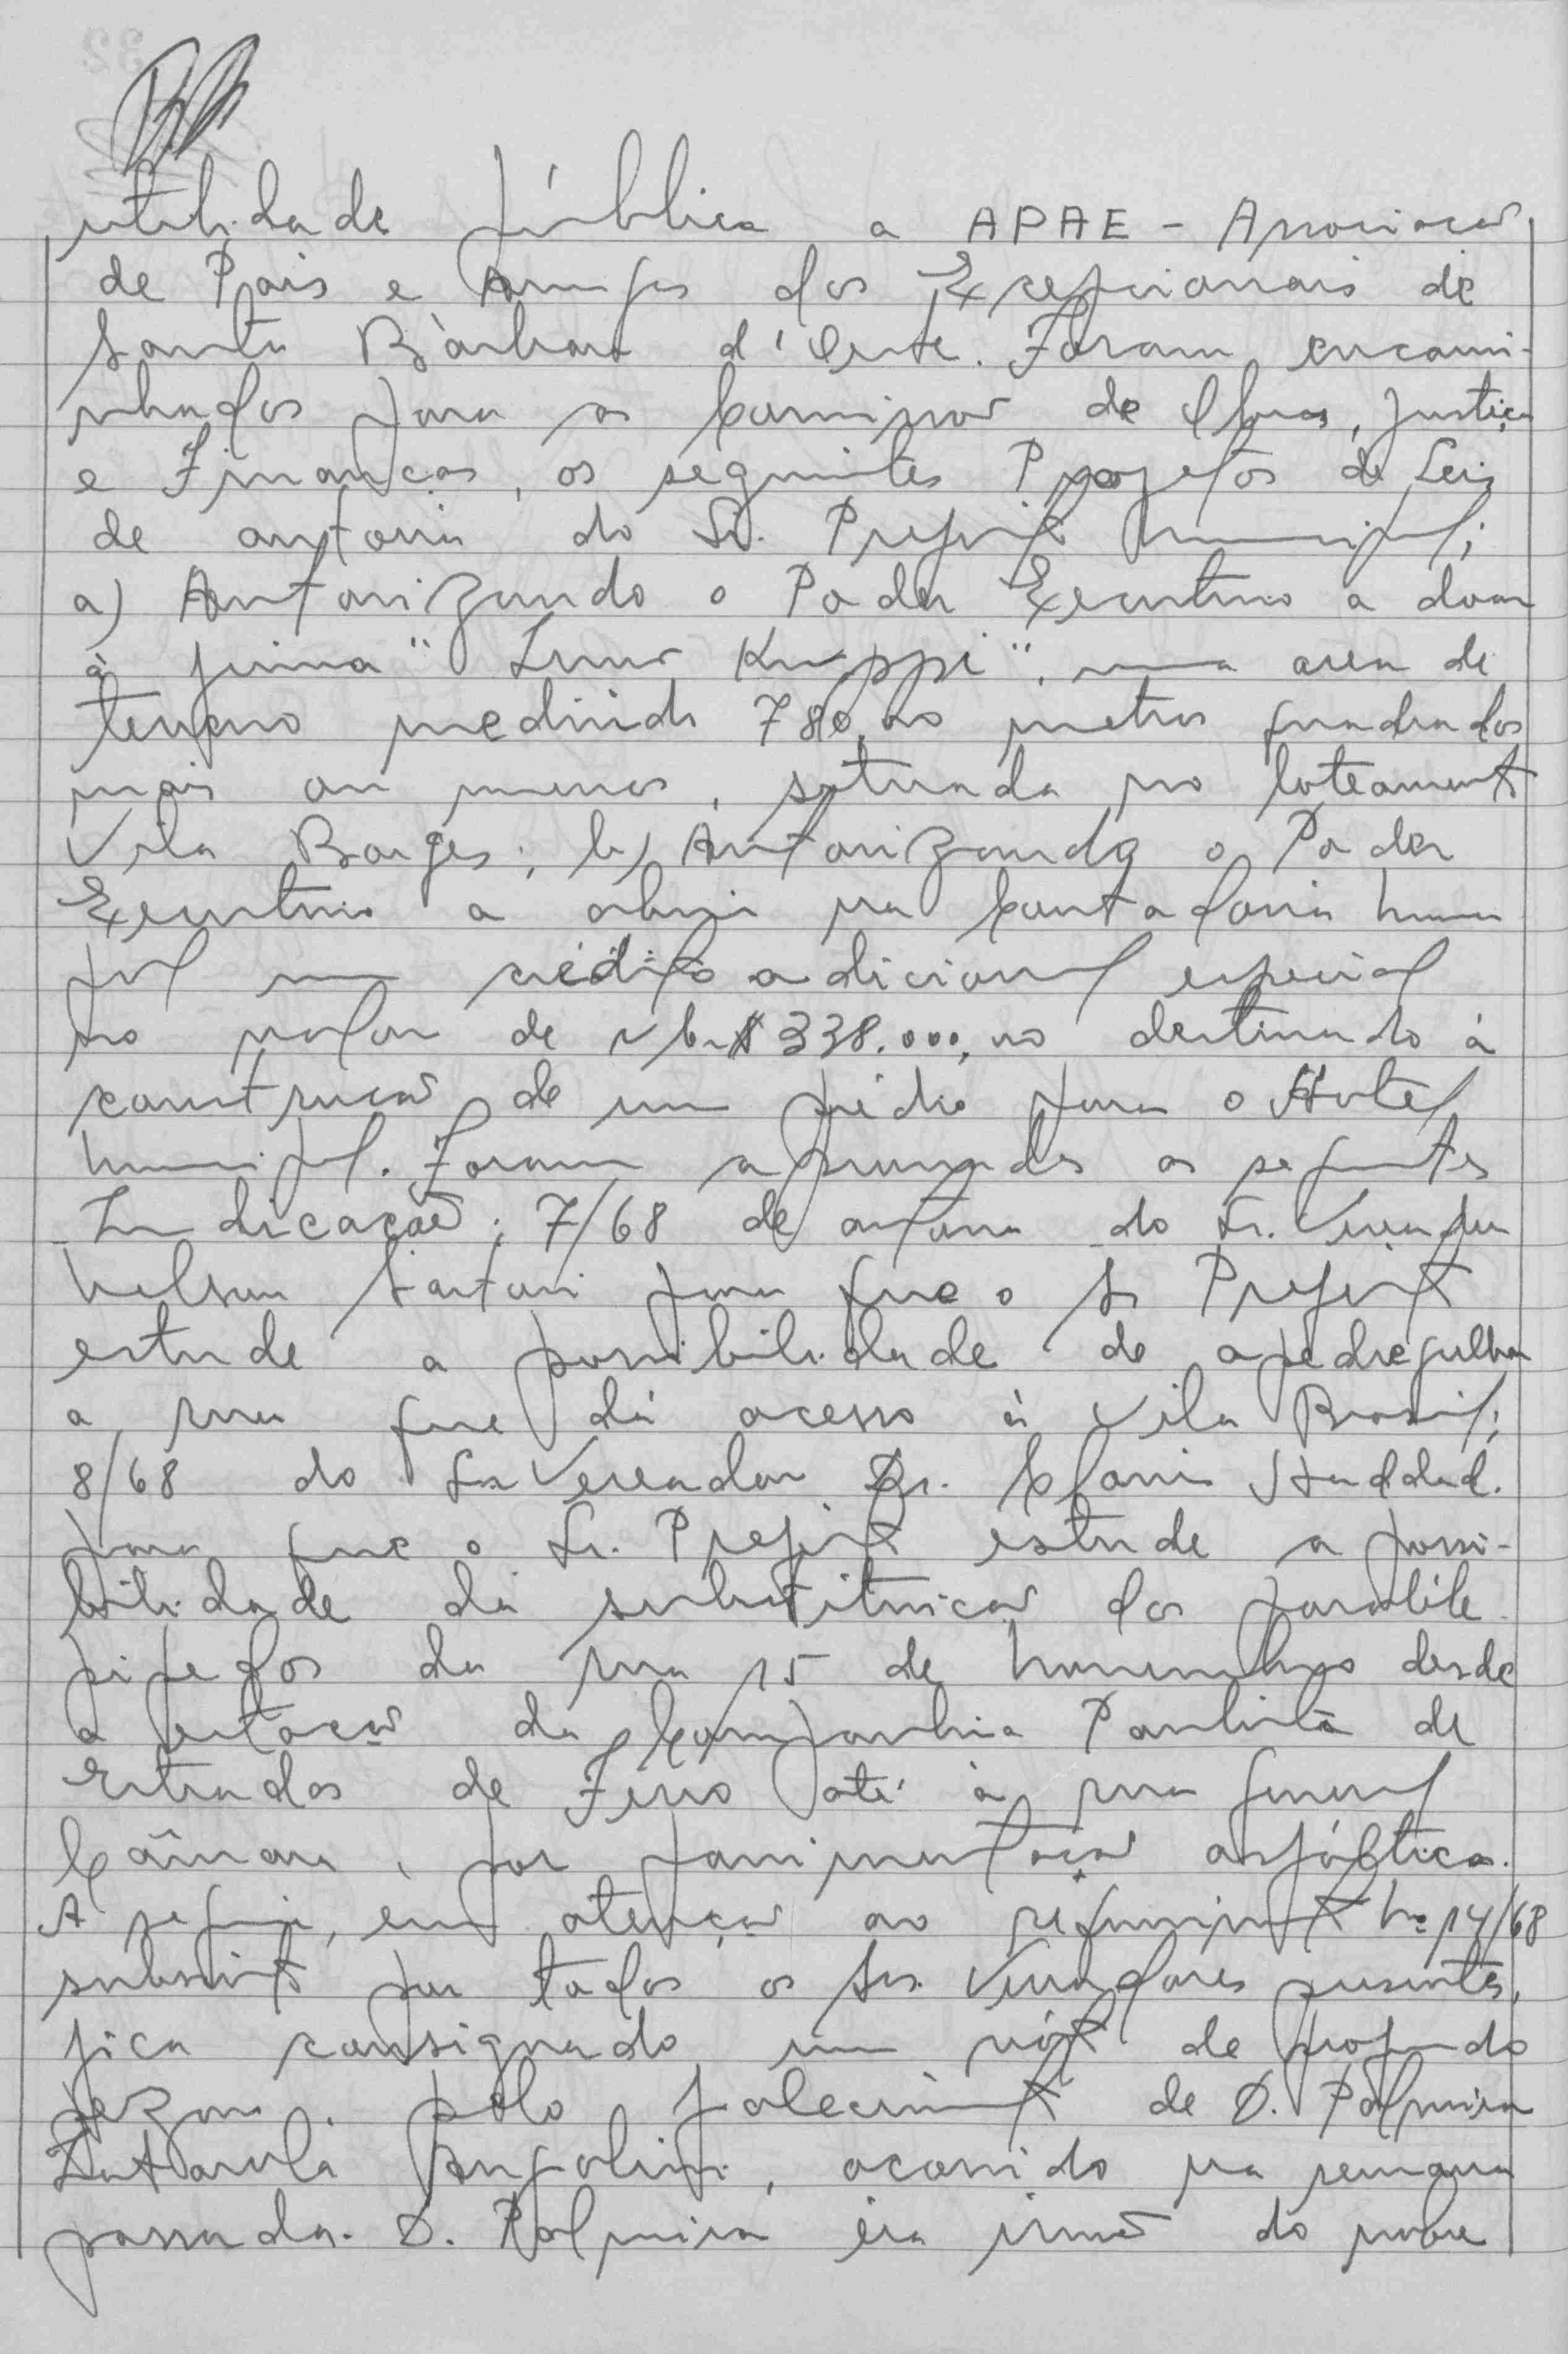 utilidade pública a APAE - Associacao
de Pais e Amigos dos Excepcionais de
Santa Bàrbara d'Oeste. Foram encami-
nhados para as Comissoes de Obras, Justiça
e Financas, os seguintes Projetos de Leis
de autoria do Sr. Prefeito Municipal;
a) Autorizando o Poder Executivo a doar
à firma " Irmãos", uma area de
terreno medindo 780,00 metros quadrados
mais ou menos, situada no loteamento
Vila Borges; b) Autorizando o Poder
Executivo a abrir na Contadoria Munici
pal um crédito adicional especial
no valor de NCr$ 338.000,00 destinado à
construcao de um prédio para o Hotel
Municipal. Foram aprovadas as seguintes
Indicação: 7/68 de autoria do Sr. Vereador
Nelson Sartori para que o Sr Prefeito
estude a possibilidade de apedregulhar
a rua que dá acesso à Vila Brasil;
8/68 do Sr Vereador Dr. Haddad.
para que o Sr. Prefeito estude a possi-
bilidade da substituicao dos paralele
pipedos da rua 15 de Novembro desde
a estacao da Companhia Paulista de
Estradas de Ferro até à rua General
Câmara, por pavimentacao asfáltica.
A seguir, em atenção ao requerimento nº 14/68
subscrito por todos os Srs. Vereadores presentes,
fica consignado um vóto de profundo
pezar pelo falecimento de D. Palmira
Angolini, ocorrido na semana
passada. D. Palmira éra irmã do nobre